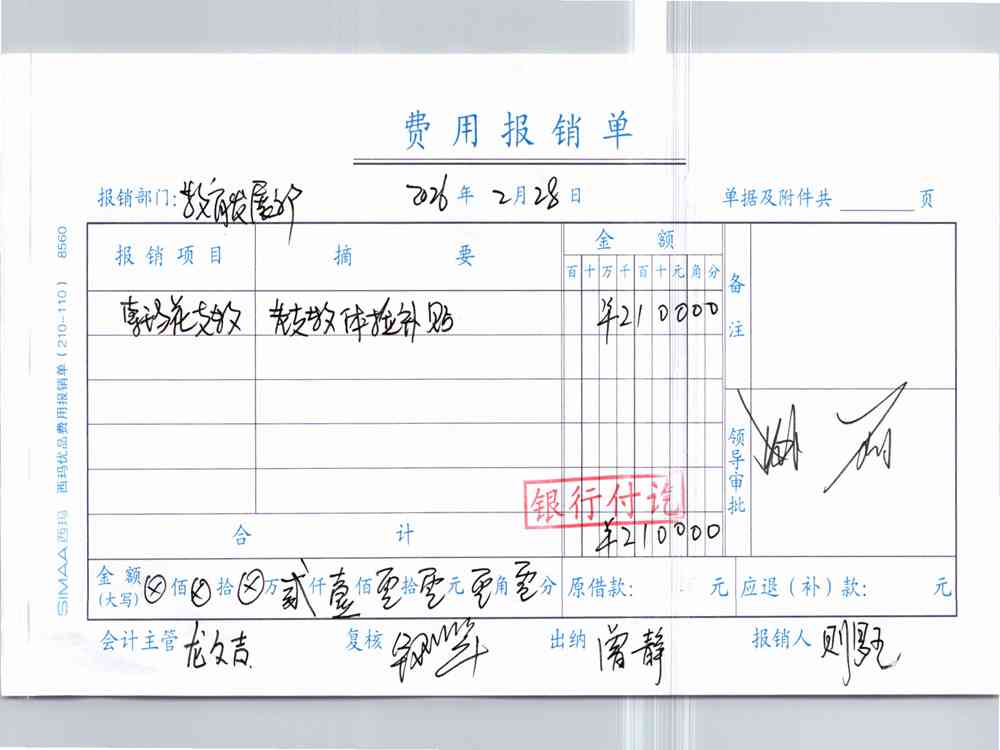 费用报销单
报销部门: 教育发展部 2026年2月28日 单据及附件共 页
报销项目 摘要 金额 备注
百十万千百十元角分
支教 支教体检补贴 ¥210000
领导审批
银行付讫
合计 ¥210000
金额(大写) ⊗佰⊗拾⊗万贰仟壹佰零拾零元零角零分 原借款: 元 应退(补)款: 元
会计主管 龙文吉 复核 出纳 曾静 报销人
SIMAA西玛 西玛优品费用报销单(210-110) 8560